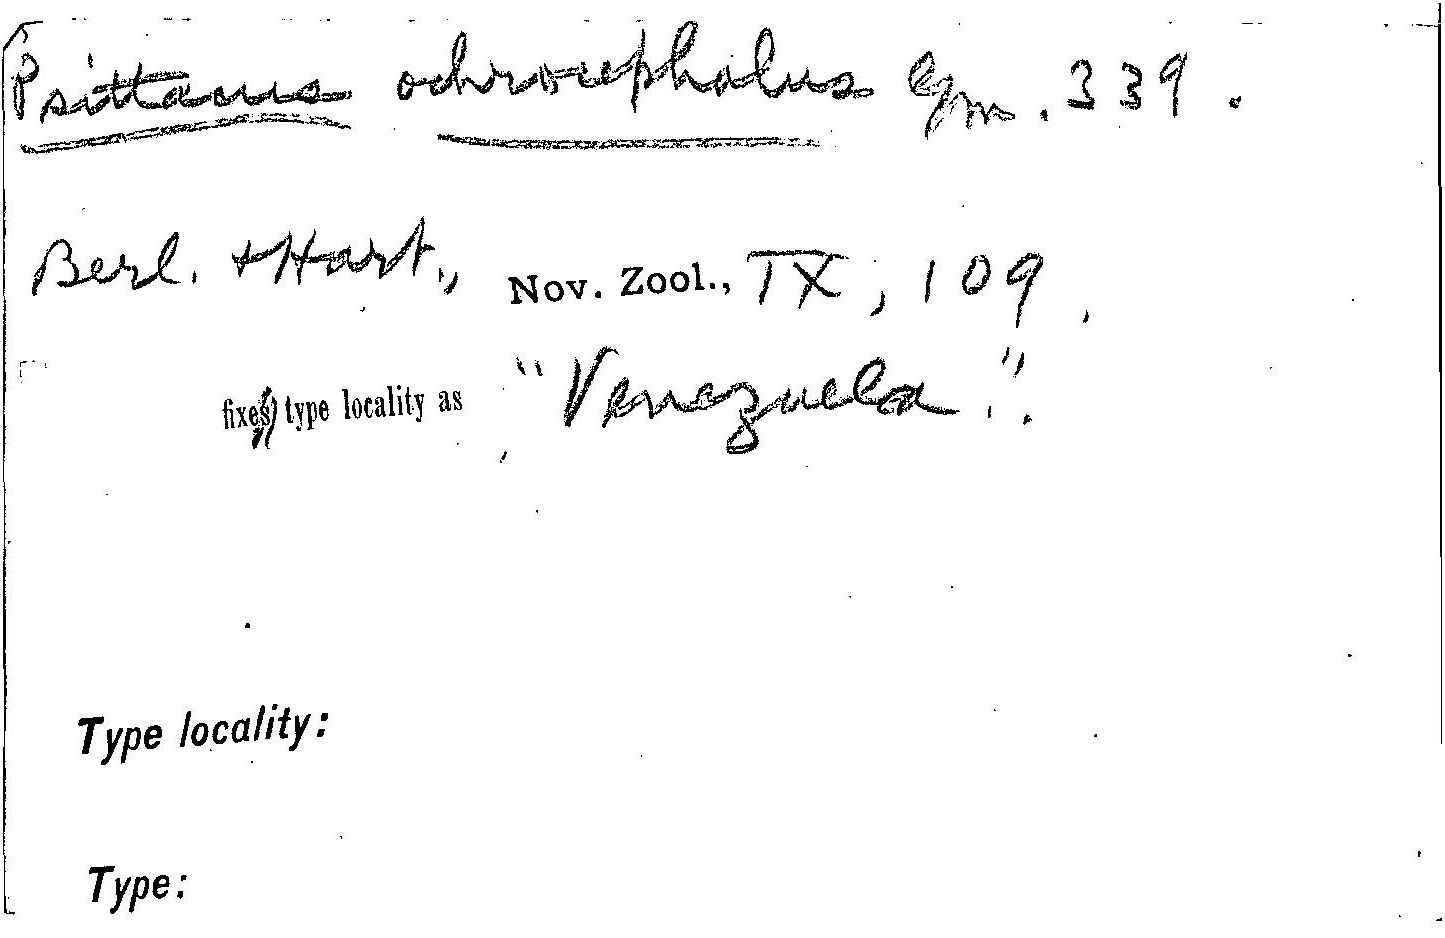 Psittacus ochrocephalus Gm. 339.
Berl. + Hart., Nov. Zool., IX, 109.
fixe(s) type locality as "Venezuela".
Type locality:
Type: